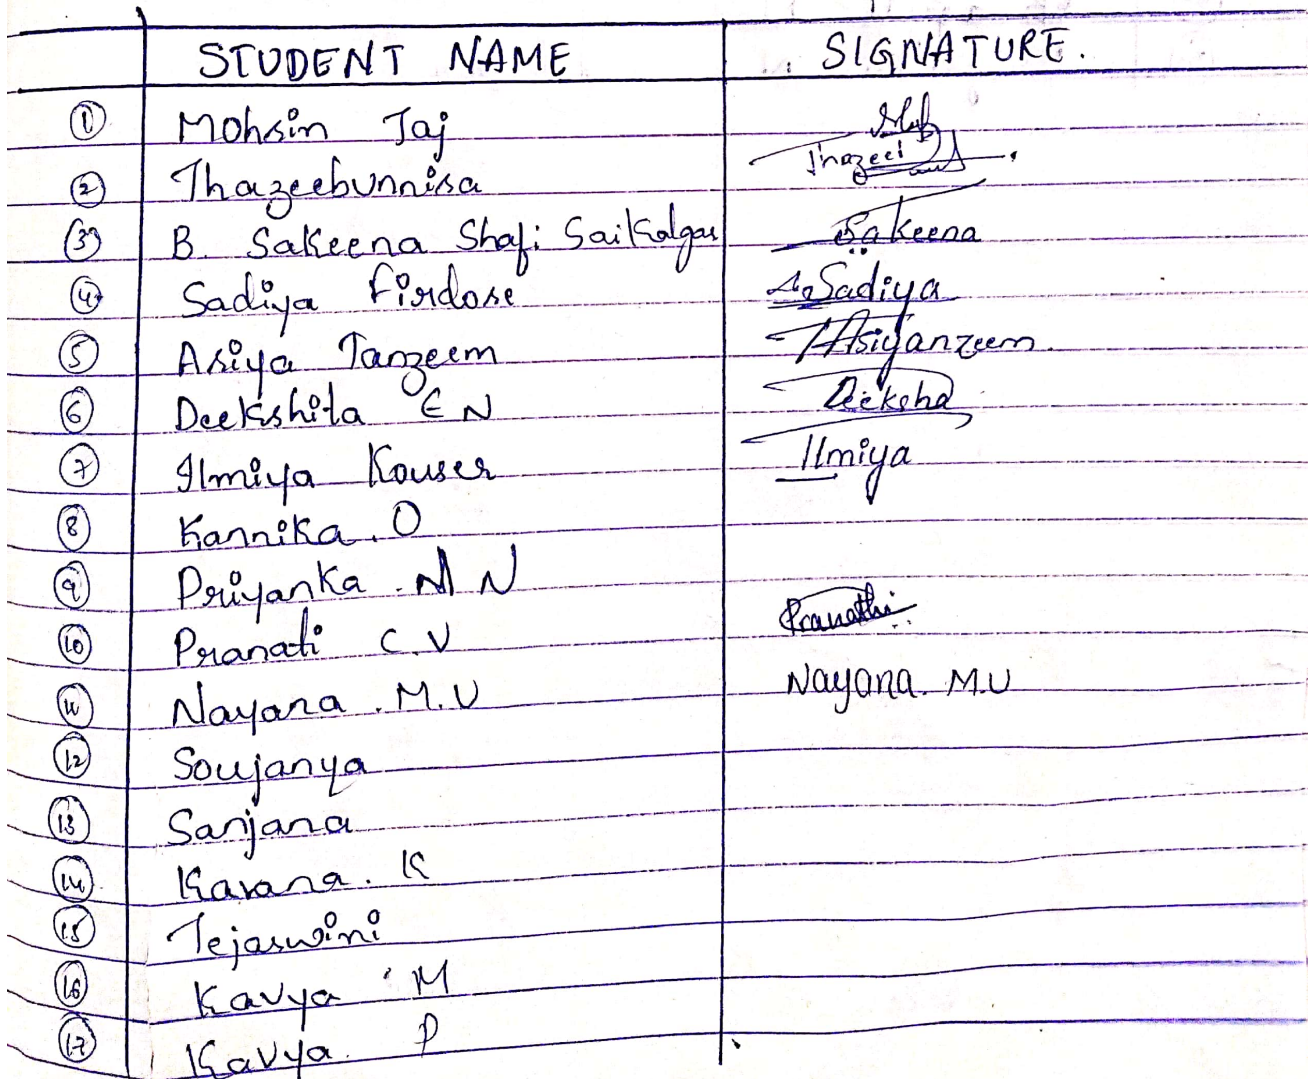 STUDENT NAME SIGNATURE.
1 Mohsin Taj
2 Thazeebunnisa Thazeeb
3 B. Sakeena Shafi Saikalgar Sakeena
4 Sadiya Firdose Sadiya
5 Asiya Tanzeem Asiyanzeem
6 Deekshita E N Deeksha
7 Ilmiya Kouser Ilmiya
8 Kannika . O
9 Priyanka . M N
10 Pranati C . V Pranathi
11 Nayana . M. U Nayana. M.U
12 Soujanya
13 Sanjana
14 Kavana . K
15 Tejaswini
16 Kavya M
17 Kavya. P